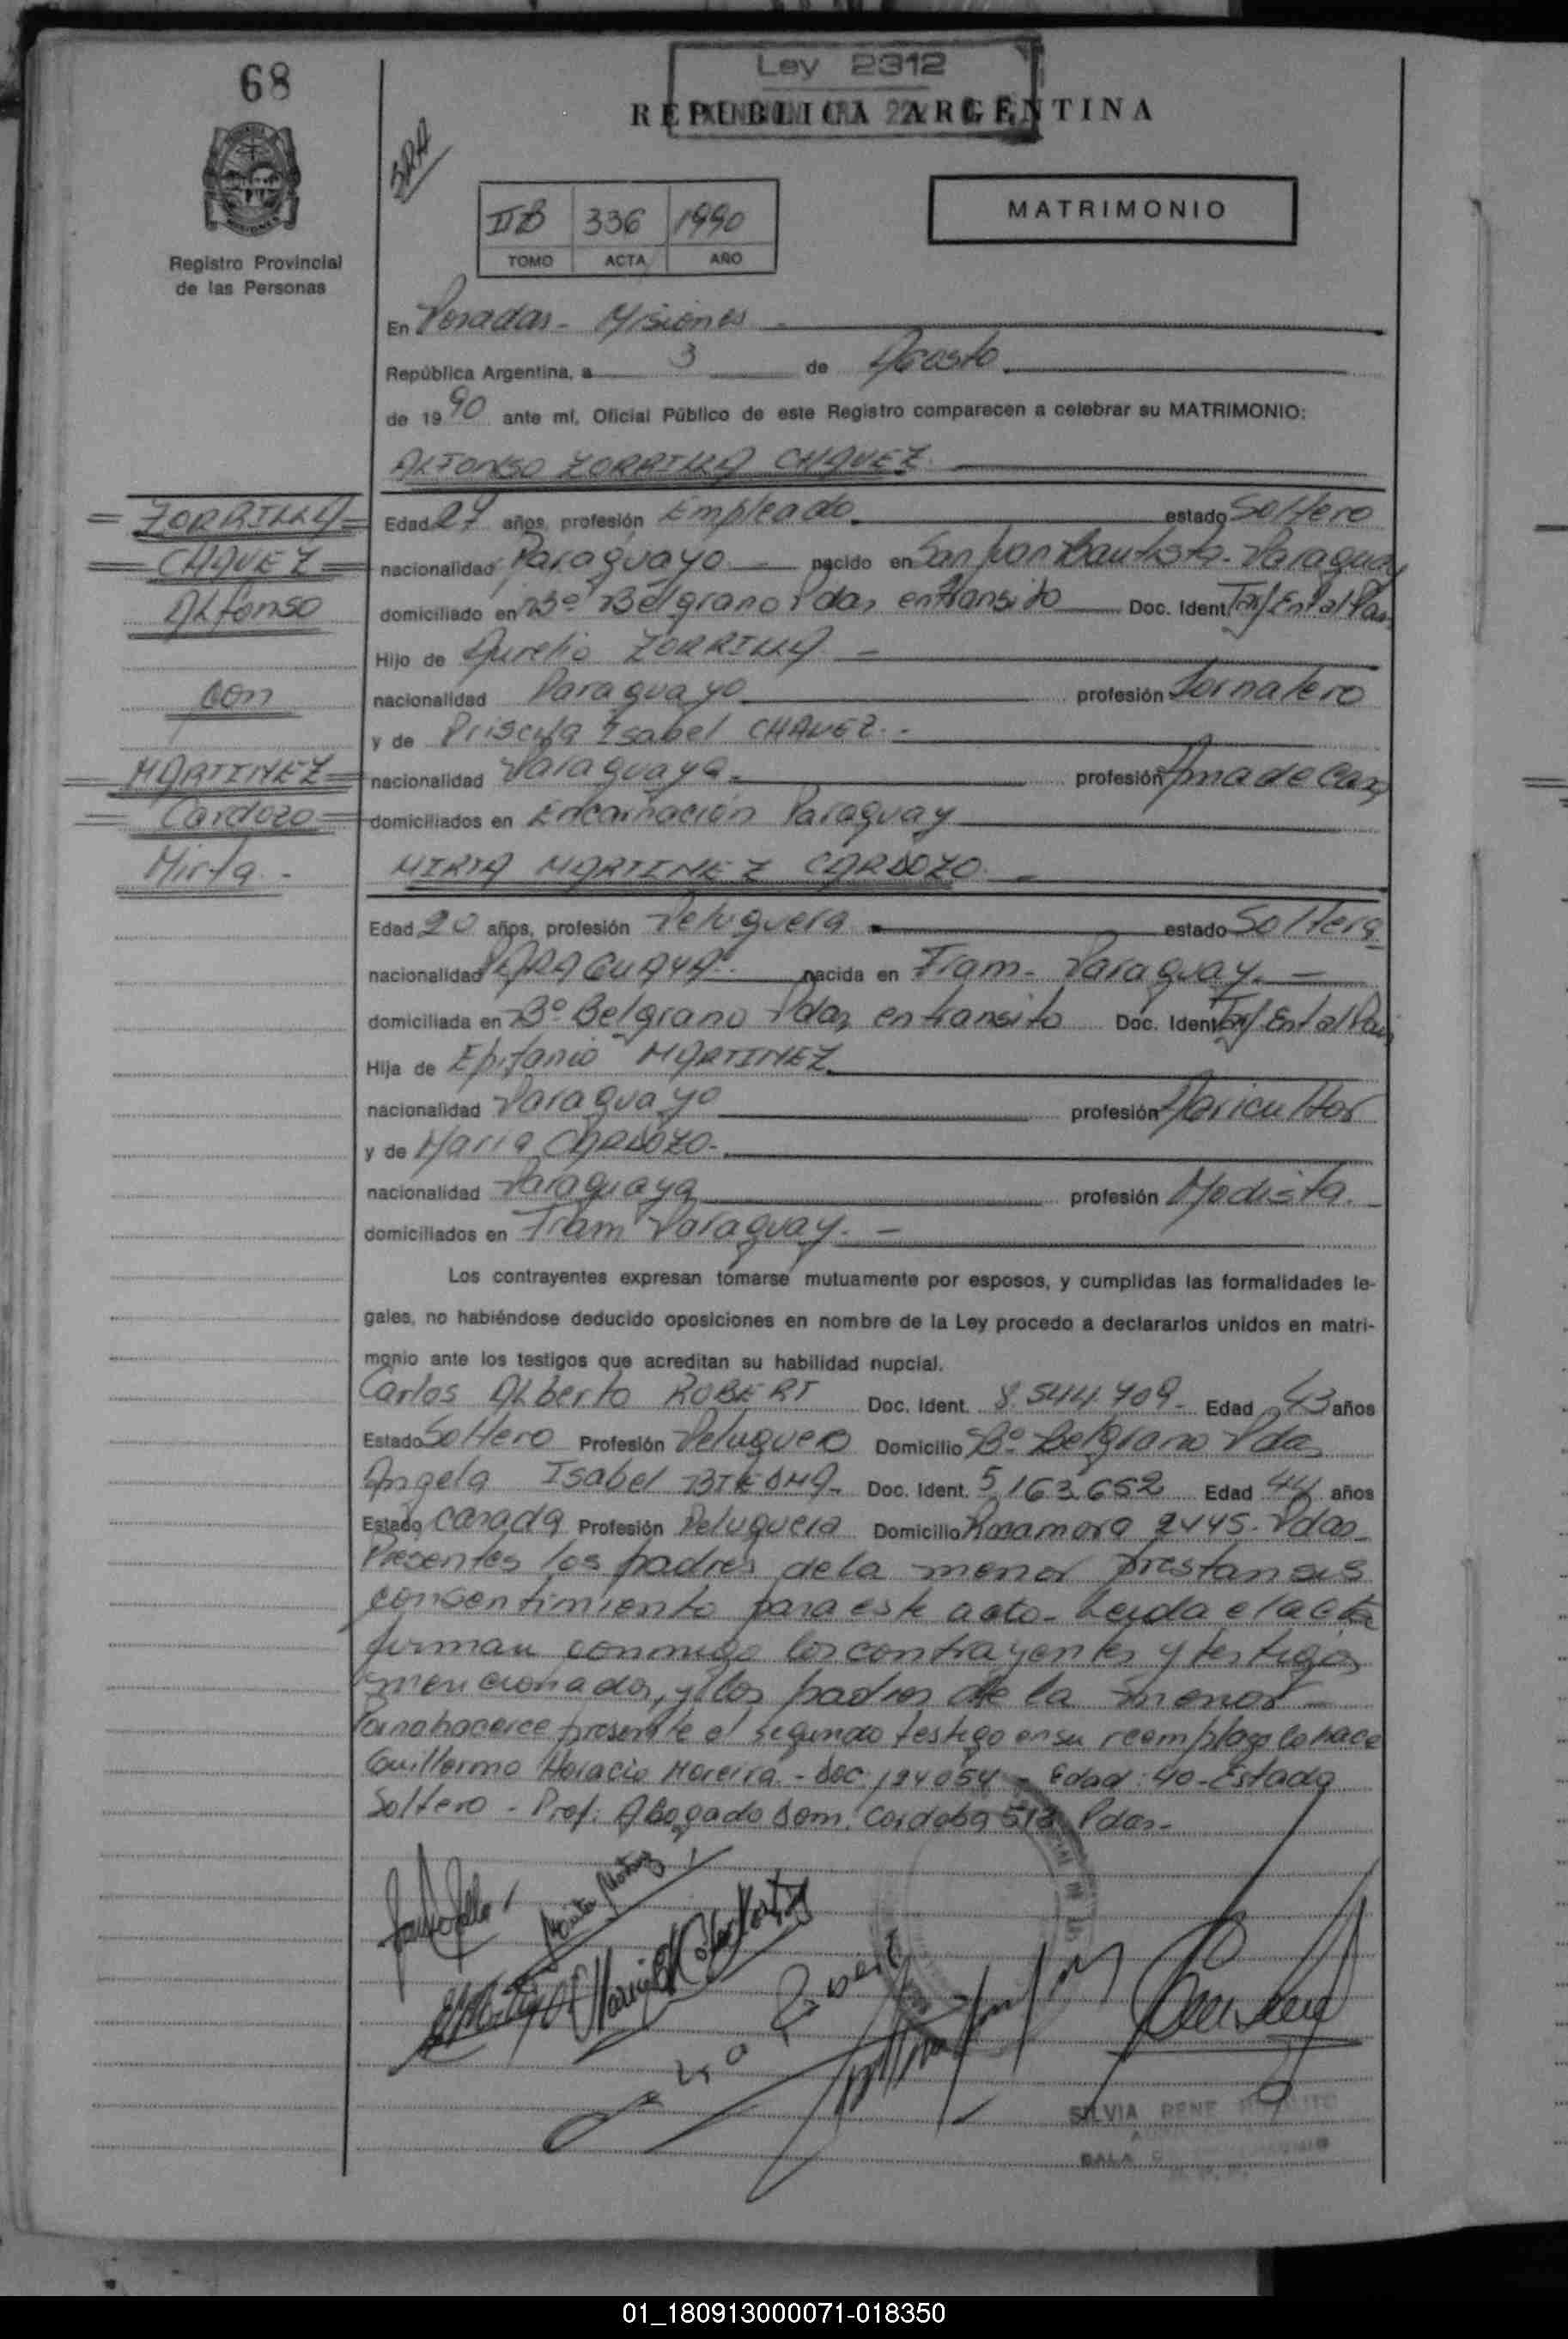 68
Ley 2312
REPUBLICA ARGENTINA
SRA
IIB 336 1990
TOMO ACTA AÑO
MATRIMONIO
Registro Provincial
de las Personas
En Posadas - Misiones
República Argentina, a 3 de Agosto
de 1990 ante mí, Oficial Público de este Registro comparecen a celebrar su MATRIMONIO:
ALFONSO ZORRILLA CHAVEZ
ZORRILLA
CHAVEZ
Alfonso
con
MARTINEZ
Cardozo
Mirta.-
Edad 27 años, profesión Empleado estado Soltero
nacionalidad Paraguayo nacido en San Juan Bautista - Paraguay
domiciliado en Bº Belgrano Pdas en transito Doc. Ident.
Hijo de Aurelio ZORRILLA
nacionalidad Paraguayo profesión Jornalero
y de Priscila Isabel CHAVEZ.-
nacionalidad Paraguaya profesión Ama de Casa
domiciliados en Encarnación Paraguay
MIRTA MARTINEZ CARDOZO
Edad 20 años, profesión Peluquera estado Soltera
nacionalidad PARAGUAYA nacida en Fram - Paraguay.
domiciliada en Bº Belgrano Pdas en transito Doc. Ident.
Hija de Epifanio MARTINEZ
nacionalidad Paraguayo profesión Agricultor
y de Maria CARDOZO.-
nacionalidad Paraguaya profesión Modista.
domiciliados en Fram Paraguay.-
Los contrayentes expresan tomarse mutuamente por esposos, y cumplidas las formalidades le-
gales, no habiéndose deducido oposiciones en nombre de la Ley procedo a declararlos unidos en matri-
monio ante los testigos que acreditan su habilidad nupcial.
Carlos Alberto ROBERT Doc. Ident. 8.544.709- Edad 43 años
Estado Soltero Profesión Peluquero Domicilio Bº Belgrano Pdas
Angela Isabel BIEDMA- Doc. Ident. 5.163.652 Edad 44 años
Estado casada Profesión Peluquera Domicilio Rocamora 2445- Pdas-
Presentes los padres de la menor prestan sus
consentimiento para este acto- Leida el acta
firman conmigo los contrayentes y testigos
mencionados, y los padres de la menor-
presente el segundo testigo en su reemplazo lo hace
Guillermo Horacio Moreira.- Doc. 124054 - Edad: 40 - Estado
Soltero - Prof. Abogado Dom. Cordoba 513 Pdas-
SILVIA RENE
SALA
01_180913000071-018350